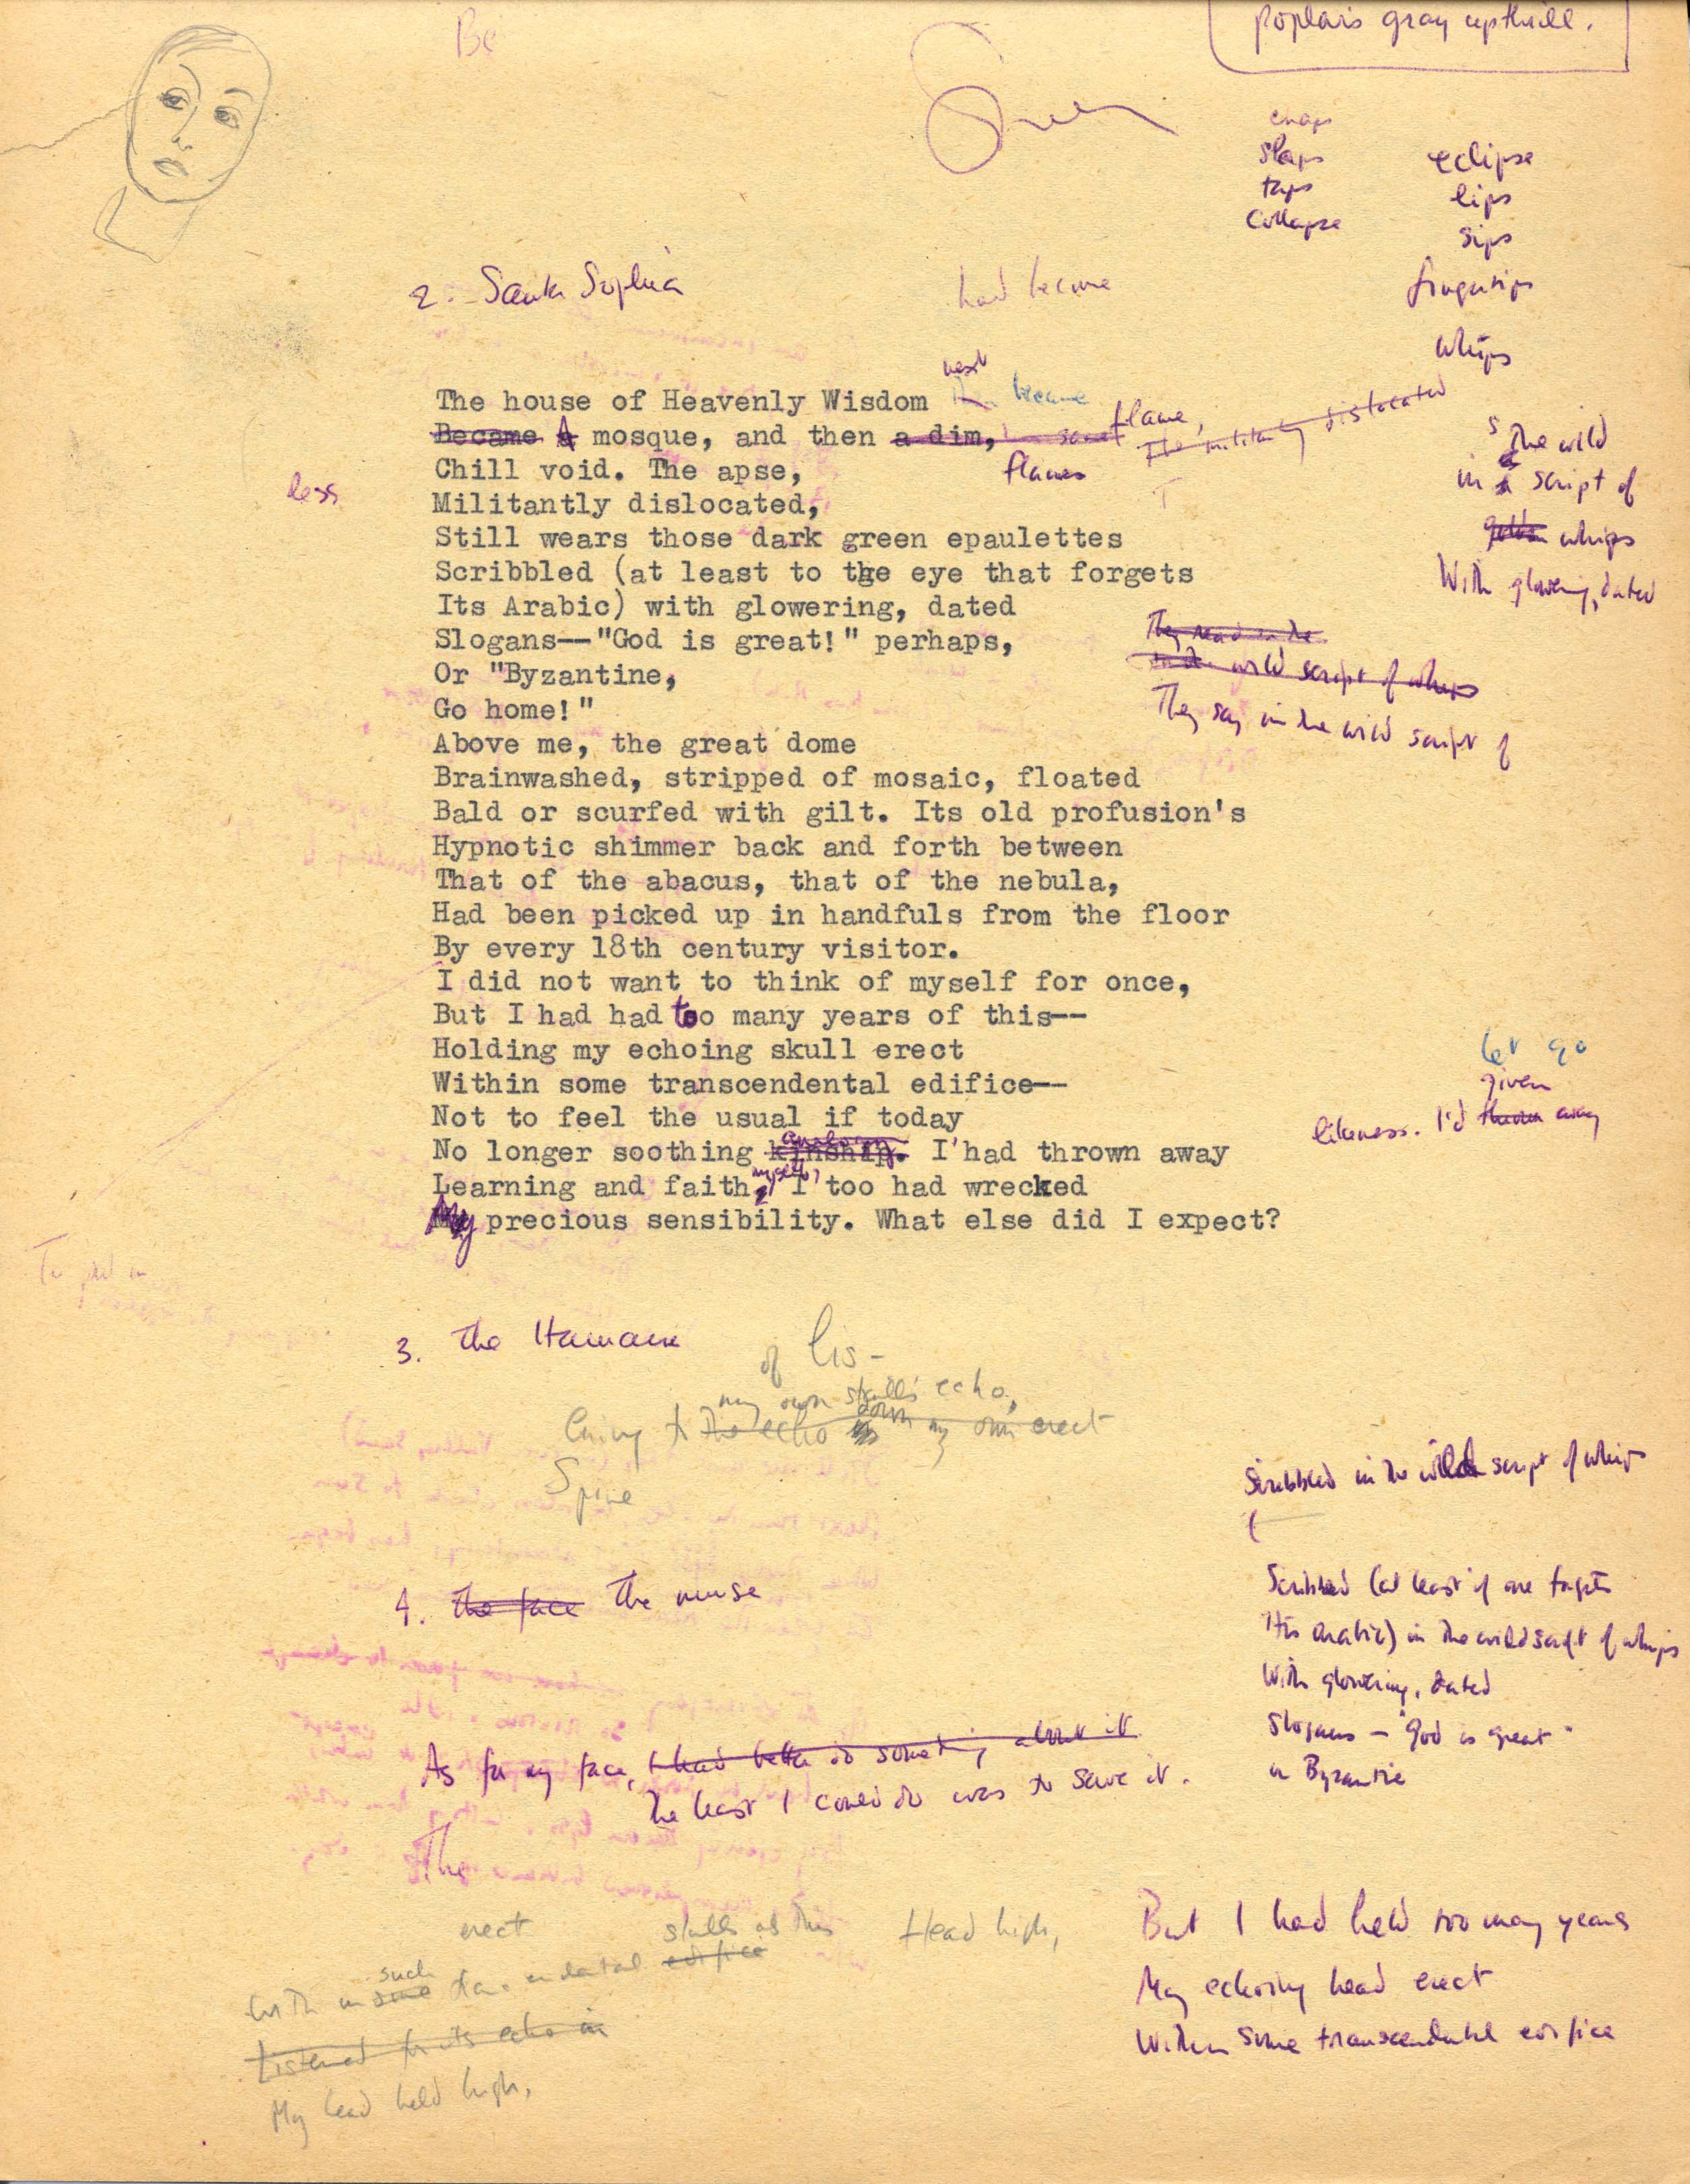 poplars gray upthrill.
Be
snaps
slaps
taps
collapse
eclipse
lips
sips
fingertips
whips
2. Santa Sophia
had become
next
The house of Heavenly Wisdom became
Became A mosque, and then a dim, flame,
The militantly dislocated
flames
Chill void. The apse,
less
Militantly dislocated,
Still wears those dark green epaulettes
Scribbled (at least to the eye that forgets
Its Arabic) with glowering, dated
Slogans--"God is great!" perhaps,
Or "Byzantine,
Go home!"
Above me, the great dome
Brainwashed, stripped of mosaic, floated
Bald or scurfed with gilt. Its old profusion's
Hypnotic shimmer back and forth between
That of the abacus, that of the nebula,
Had been picked up in handfuls from the floor
By every 18th century visitor.
I did not want to think of myself for once,
But I had had too many years of this--
Holding my echoing skull erect
Within some transcendental edifice--
Not to feel the usual if today
No longer soothing kinship. I'had thrown away
Learning and faith, myself, I too had wrecked
My precious sensibility. What else did I expect?
s the wild
in a script of
whips
With glowering, dated
They read in the
in the wild script of whips
They say in the wild script of
let go
given
likeness. I'd thrown away
3. The Hamam
of lis-
my own skull's echo,
the echo down my own erect
Spine
4. The face The nurse
As for my face, I had better do something about it
The least I could do was to save it.
The
Scribbled in the wild script of whips
(
Scribbled (at least if one forgets
His Arabic) in the wild script of whips
With glowering, dated
Slogans — "God is great"
or Byzantine
erect
skulls as this
Head high,
such
Within some transcendental edifice
Listened for its echo in
My head held high,
But I had held too many years
My echoing head erect
Within some transcendental edifice